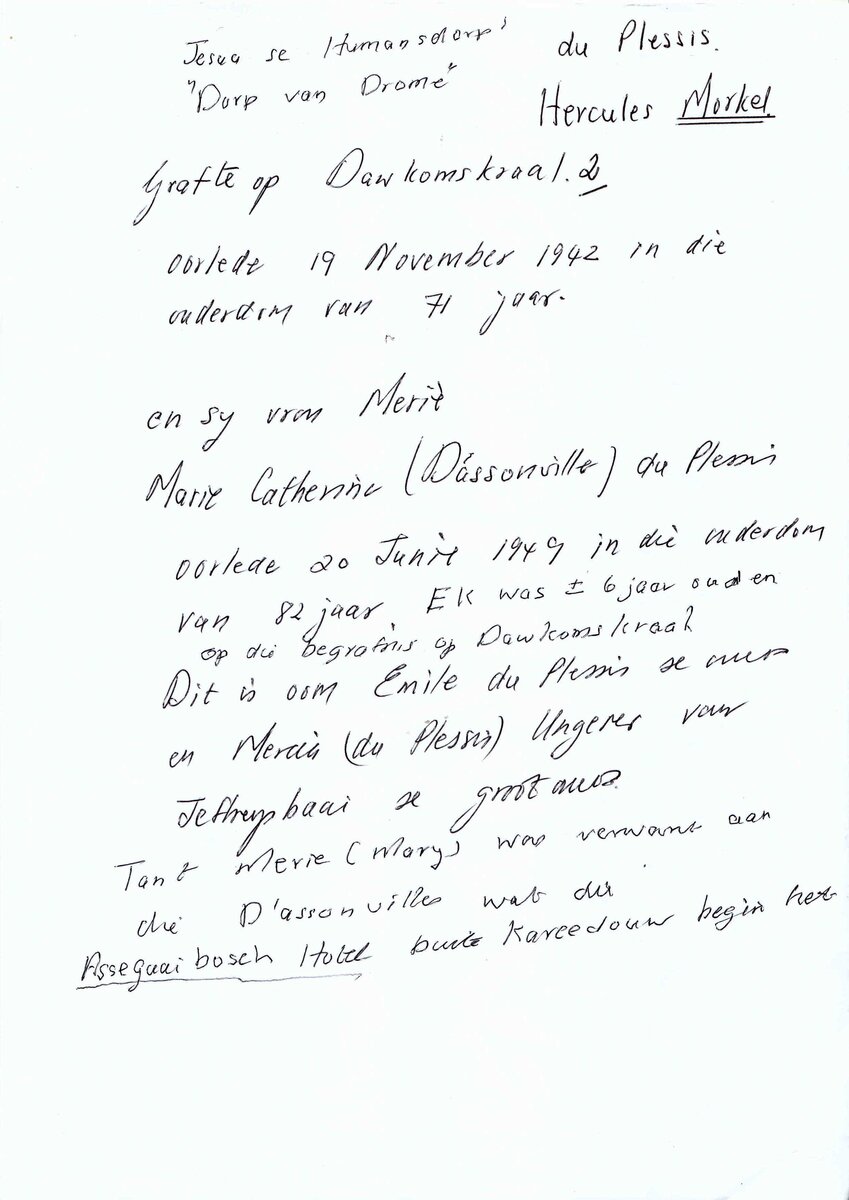 Jesua se Humansdorp'
"Dorp van Drome"
du Plessis.
Hercules Morkel.
Grafte op Dawkomskraal. 2
oorlede 19 November 1942 in die
ouderdom van 71 jaar.
en sy vrou Merie
Marie Catherine (Dássonville) du Plessis
oorlede 20 Junie 1949 in die ouderdom
van 82 jaar. EK was ± 6 jaar oud en
op die begrafnis op Dawkomskraal
Dit is oom Emile du Plessis se ouers
en Mercia (du Plessis) Ungerer van
Jeffreysbaai se grootouers.
Tant Merie (Mary) was verwant aan
die D'assonvilles wat die
Assegaaibosch Hotel buite Kareedouw begin het